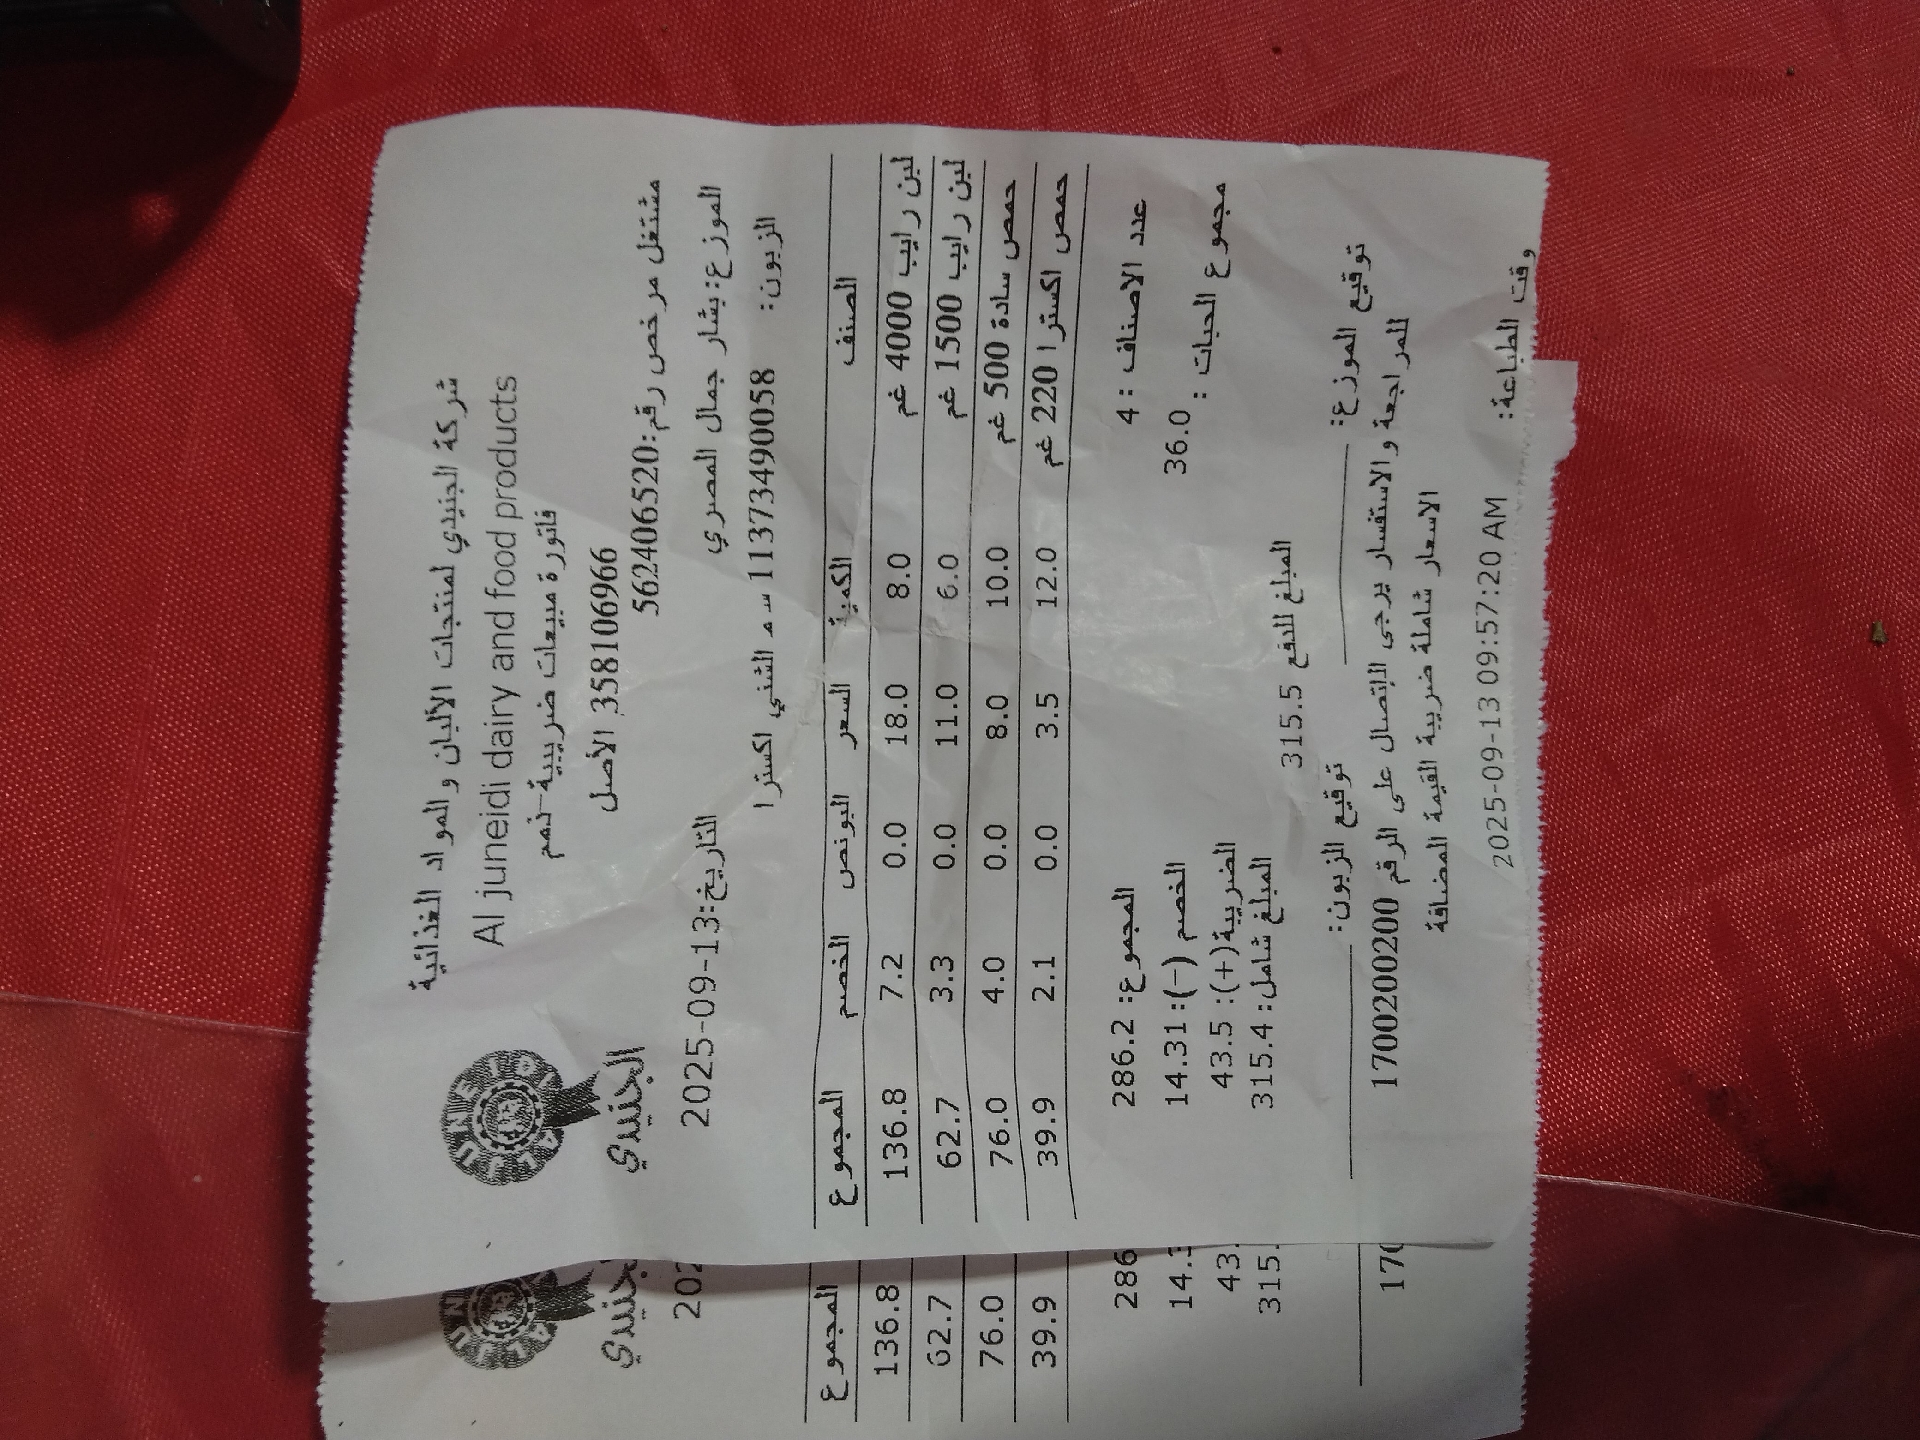 شركة الجنيدي لمنتجات الألبان والمواد الغذائية
Al juneidi dairy and food products
فاتورة مبيعات ضريبية-ذمم
358106966 الأصل
الجنيدي
مشتغل مرخص رقم:562406520
الموزع:بشار جمال المصري التاريخ:2025-09-13
الزبون: 11373490058 س م الشني اكسترا
الصنف الكمية السعر البونص الخصم المجموع
لبن رايب 4000 غم 8.0 18.0 0.0 7.2 136.8
لبن رايب 1500 غم 6.0 11.0 0.0 3.3 62.7
حمص سادة 500 غم 10.0 8.0 0.0 4.0 76.0
حمص اكسترا 220 غم 12.0 3.5 0.0 2.1 39.9
عدد الاصناف : 4 المجموع: 286.2
مجموع الحبات : 36.0 الخصم (-):14.31
الضريبة(+): 43.5
المبلغ شامل: 315.4
المبلغ للدفع 315.5
توقيع الموزع: توقيع الزبون:
للمراجعة والاستفسار يرجى الإتصال على الرقم 1700200200
الاسعار شاملة ضريبة القيمة المضافة
وقت الطباعة: 2025-09-13 09:57:20 AM
المجموع
136.8
62.7
76.0
39.9